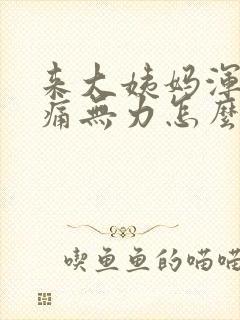 来大姨妈浑
痛无力怎麽
喫鱼鱼的喵喵